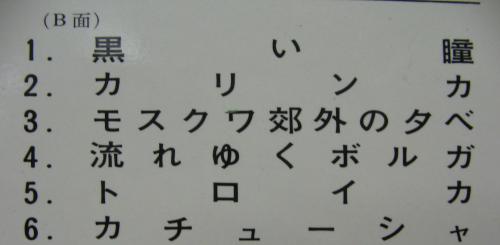 (B面)
1. 黒い瞳
2. カリンカ
3. モスクワ郊外の夕べ
4. 流れゆくボルガ
5. トロイカ
6. カチューシャ